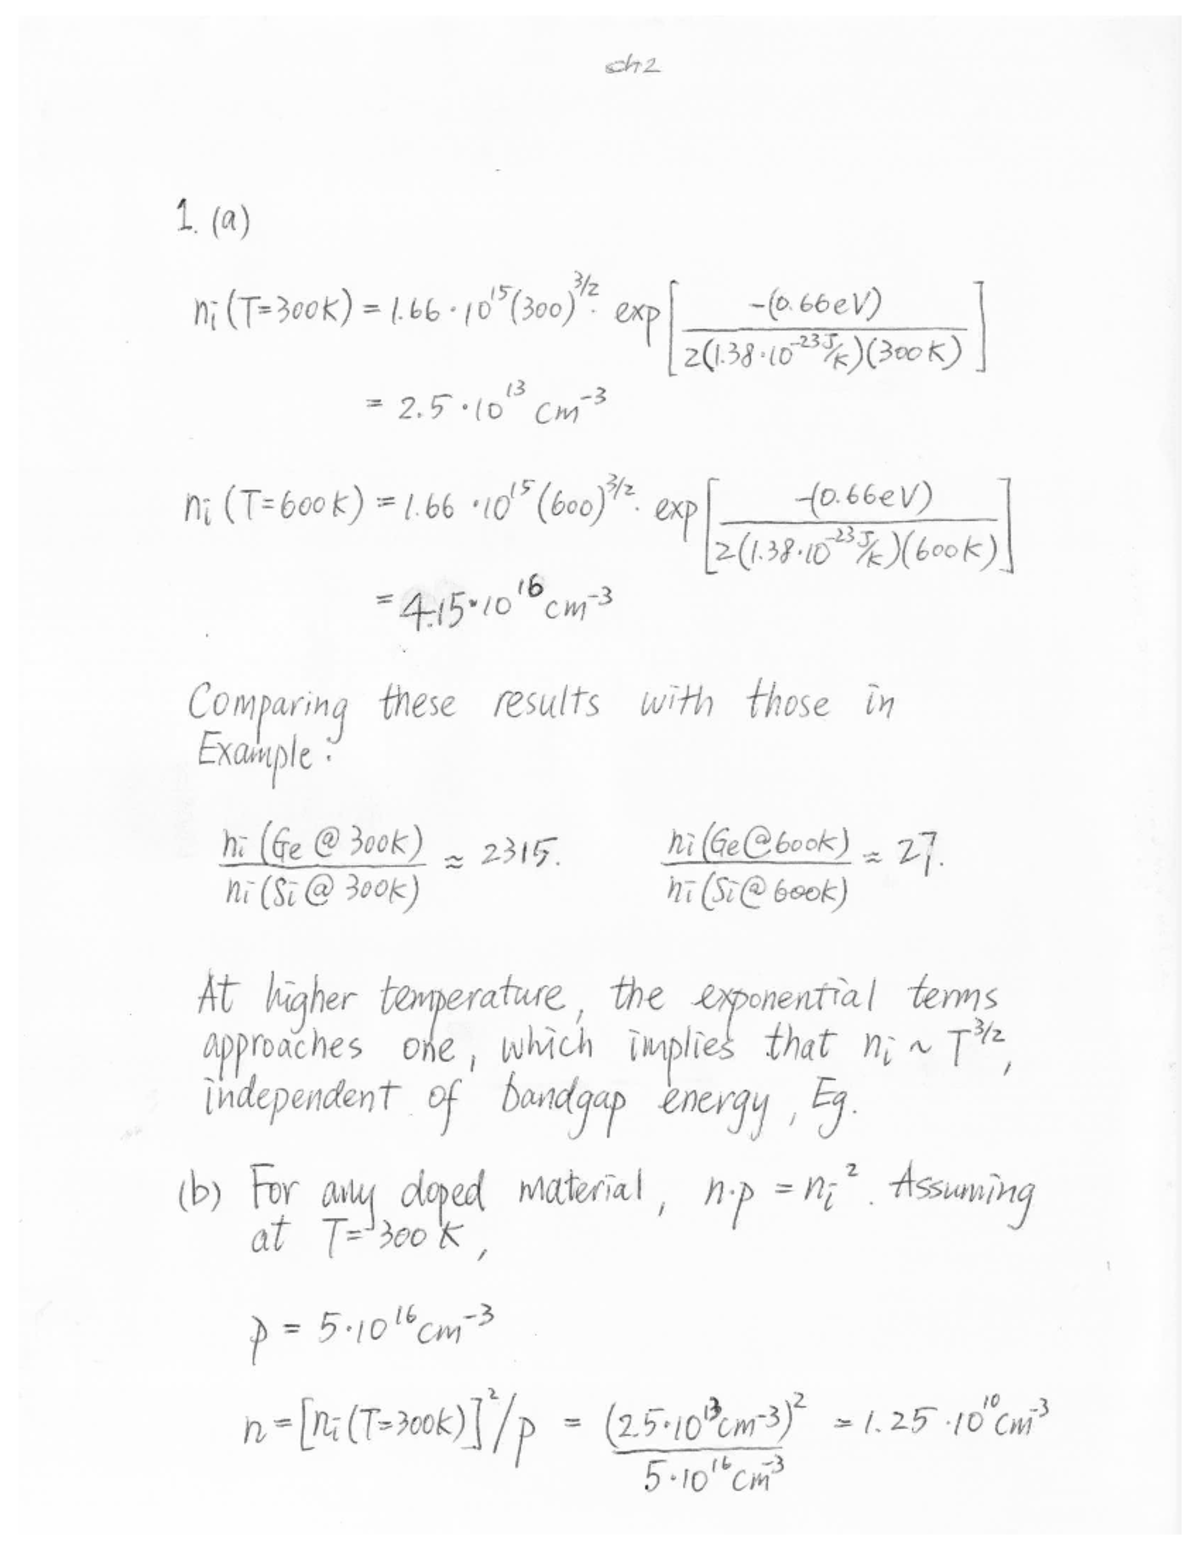 ch2
1. (a)
ni (T=300K) = 1.66 · 10^15 (300)^3/2 · exp [ -(0.66eV) / 2(1.38·10^-23 J/K)(300K) ]
= 2.5 · 10^13 cm^-3
ni (T=600K) = 1.66 · 10^15 (600)^3/2 · exp [ -(0.66eV) / 2(1.38·10^-23 J/K)(600K) ]
= 4.15·10^16 cm^-3
Comparing these results with those in
Example:
ni (Ge @ 300K) / ni (Si @ 300K) ≈ 2315. ni (Ge@600K) / ni (Si@600K) ≈ 27.
At higher temperature, the exponential terms
approaches one, which implies that ni ~ T^3/2,
independent of bandgap energy, Eg.
(b) For any doped material, n·p = ni^2. Assuming
at T=300K,
p = 5·10^16 cm^-3
n = [ni (T=300K)]^2/p = (2.5·10^13 cm-3)^2 / 5·10^16 cm^-3 = 1.25·10^10 cm^-3